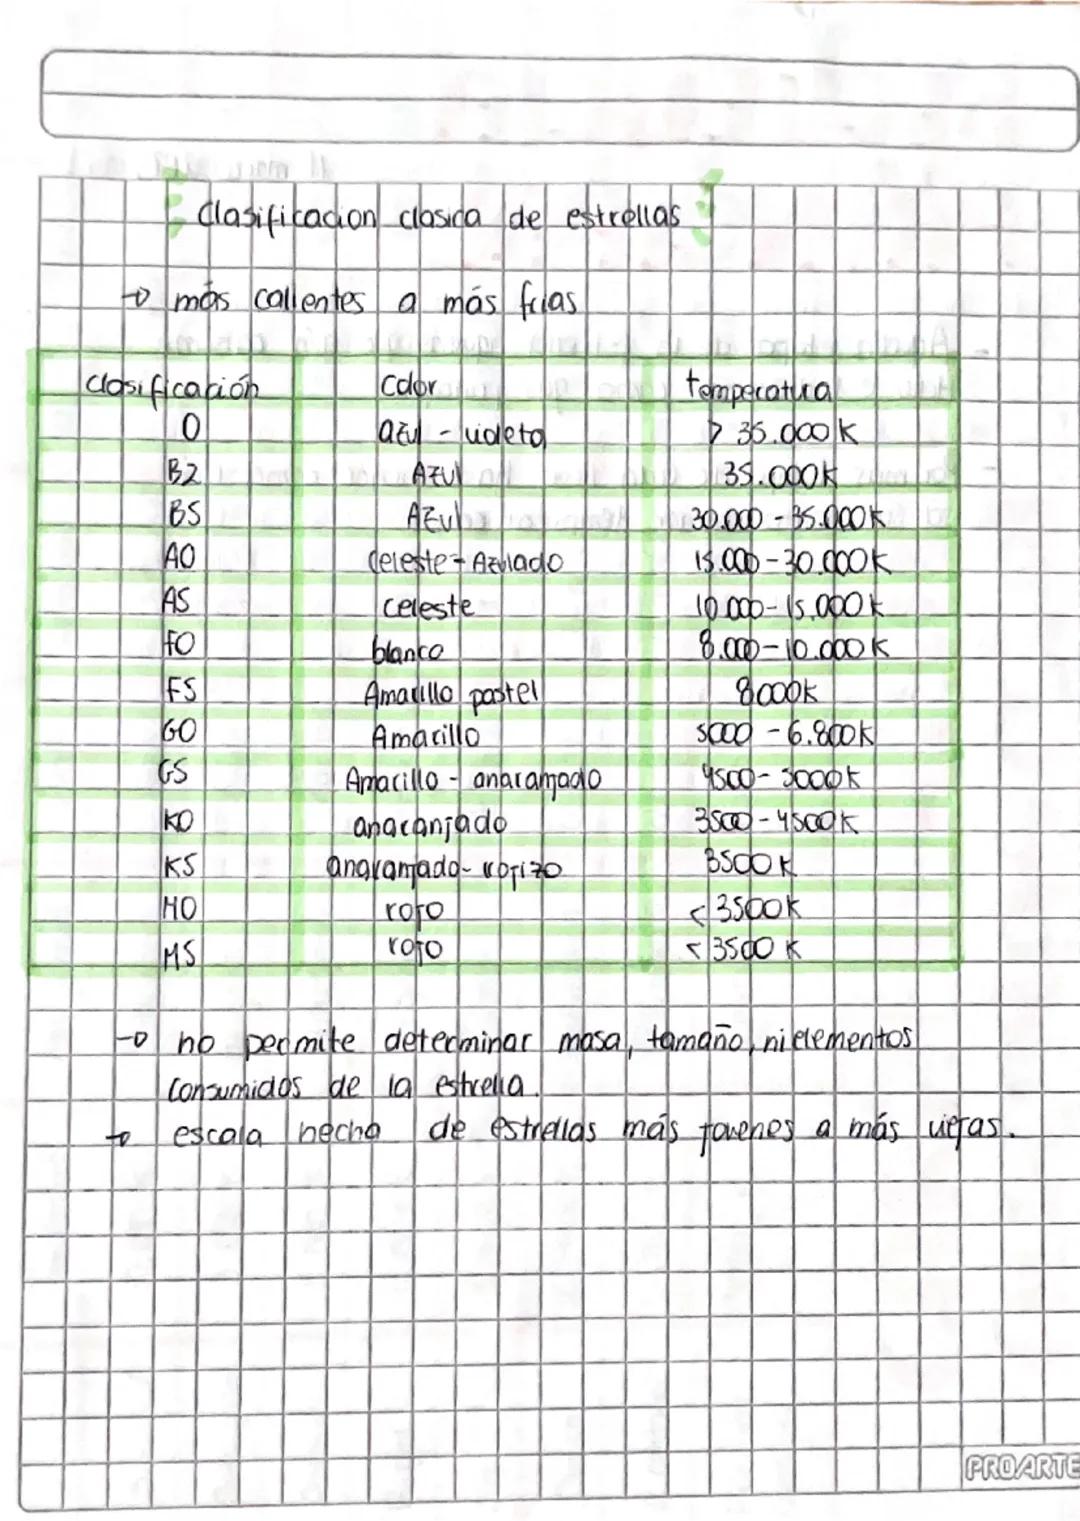 Clasificacion clasica de estrellas
→ más calientes a más frias
clasificación color temperatura
O azul - violeta > 35.000 K
B2 Azul 35.000K
B5 Azul 30.000 - 35.000K
A0 celeste - Azulado 15.000 - 30.000K
A5 celeste 10.000 - 15.000 K
F0 blanco 8.000 - 10.000 K
F5 Amarillo pastel 8000K
G0 Amarillo 5000 - 6.800K
G5 Amarillo - anaranjado 4500 - 5000K
K0 anaranjado 3500 - 4500K
K5 anaranjado - rojizo 3500 K
M0 rojo < 3500K
M5 rojo < 3500 K
→ no permite determinar masa, tamaño, ni elementos
consumidos de la estrella.
→ escala hecha de estrellas más jovenes a más viejas.
PROARTE